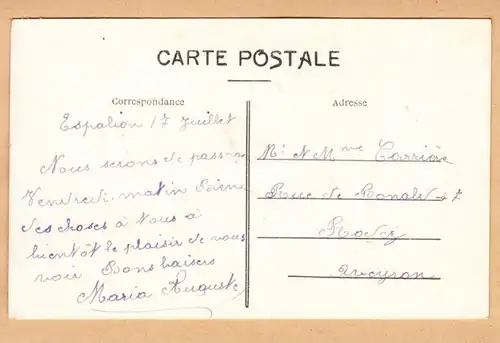 CARTE POSTALE
Correspondance
Espalion 17 Juillet
Nous serons de passage
Vendredi matin Bien
des choses à vous à
bientôt le plaisir de vous
voir Bons baisers
Maria Auguste
Adresse
Mr & Mme Carrière
Rue de Bonald 7
Rodez
Aveyron